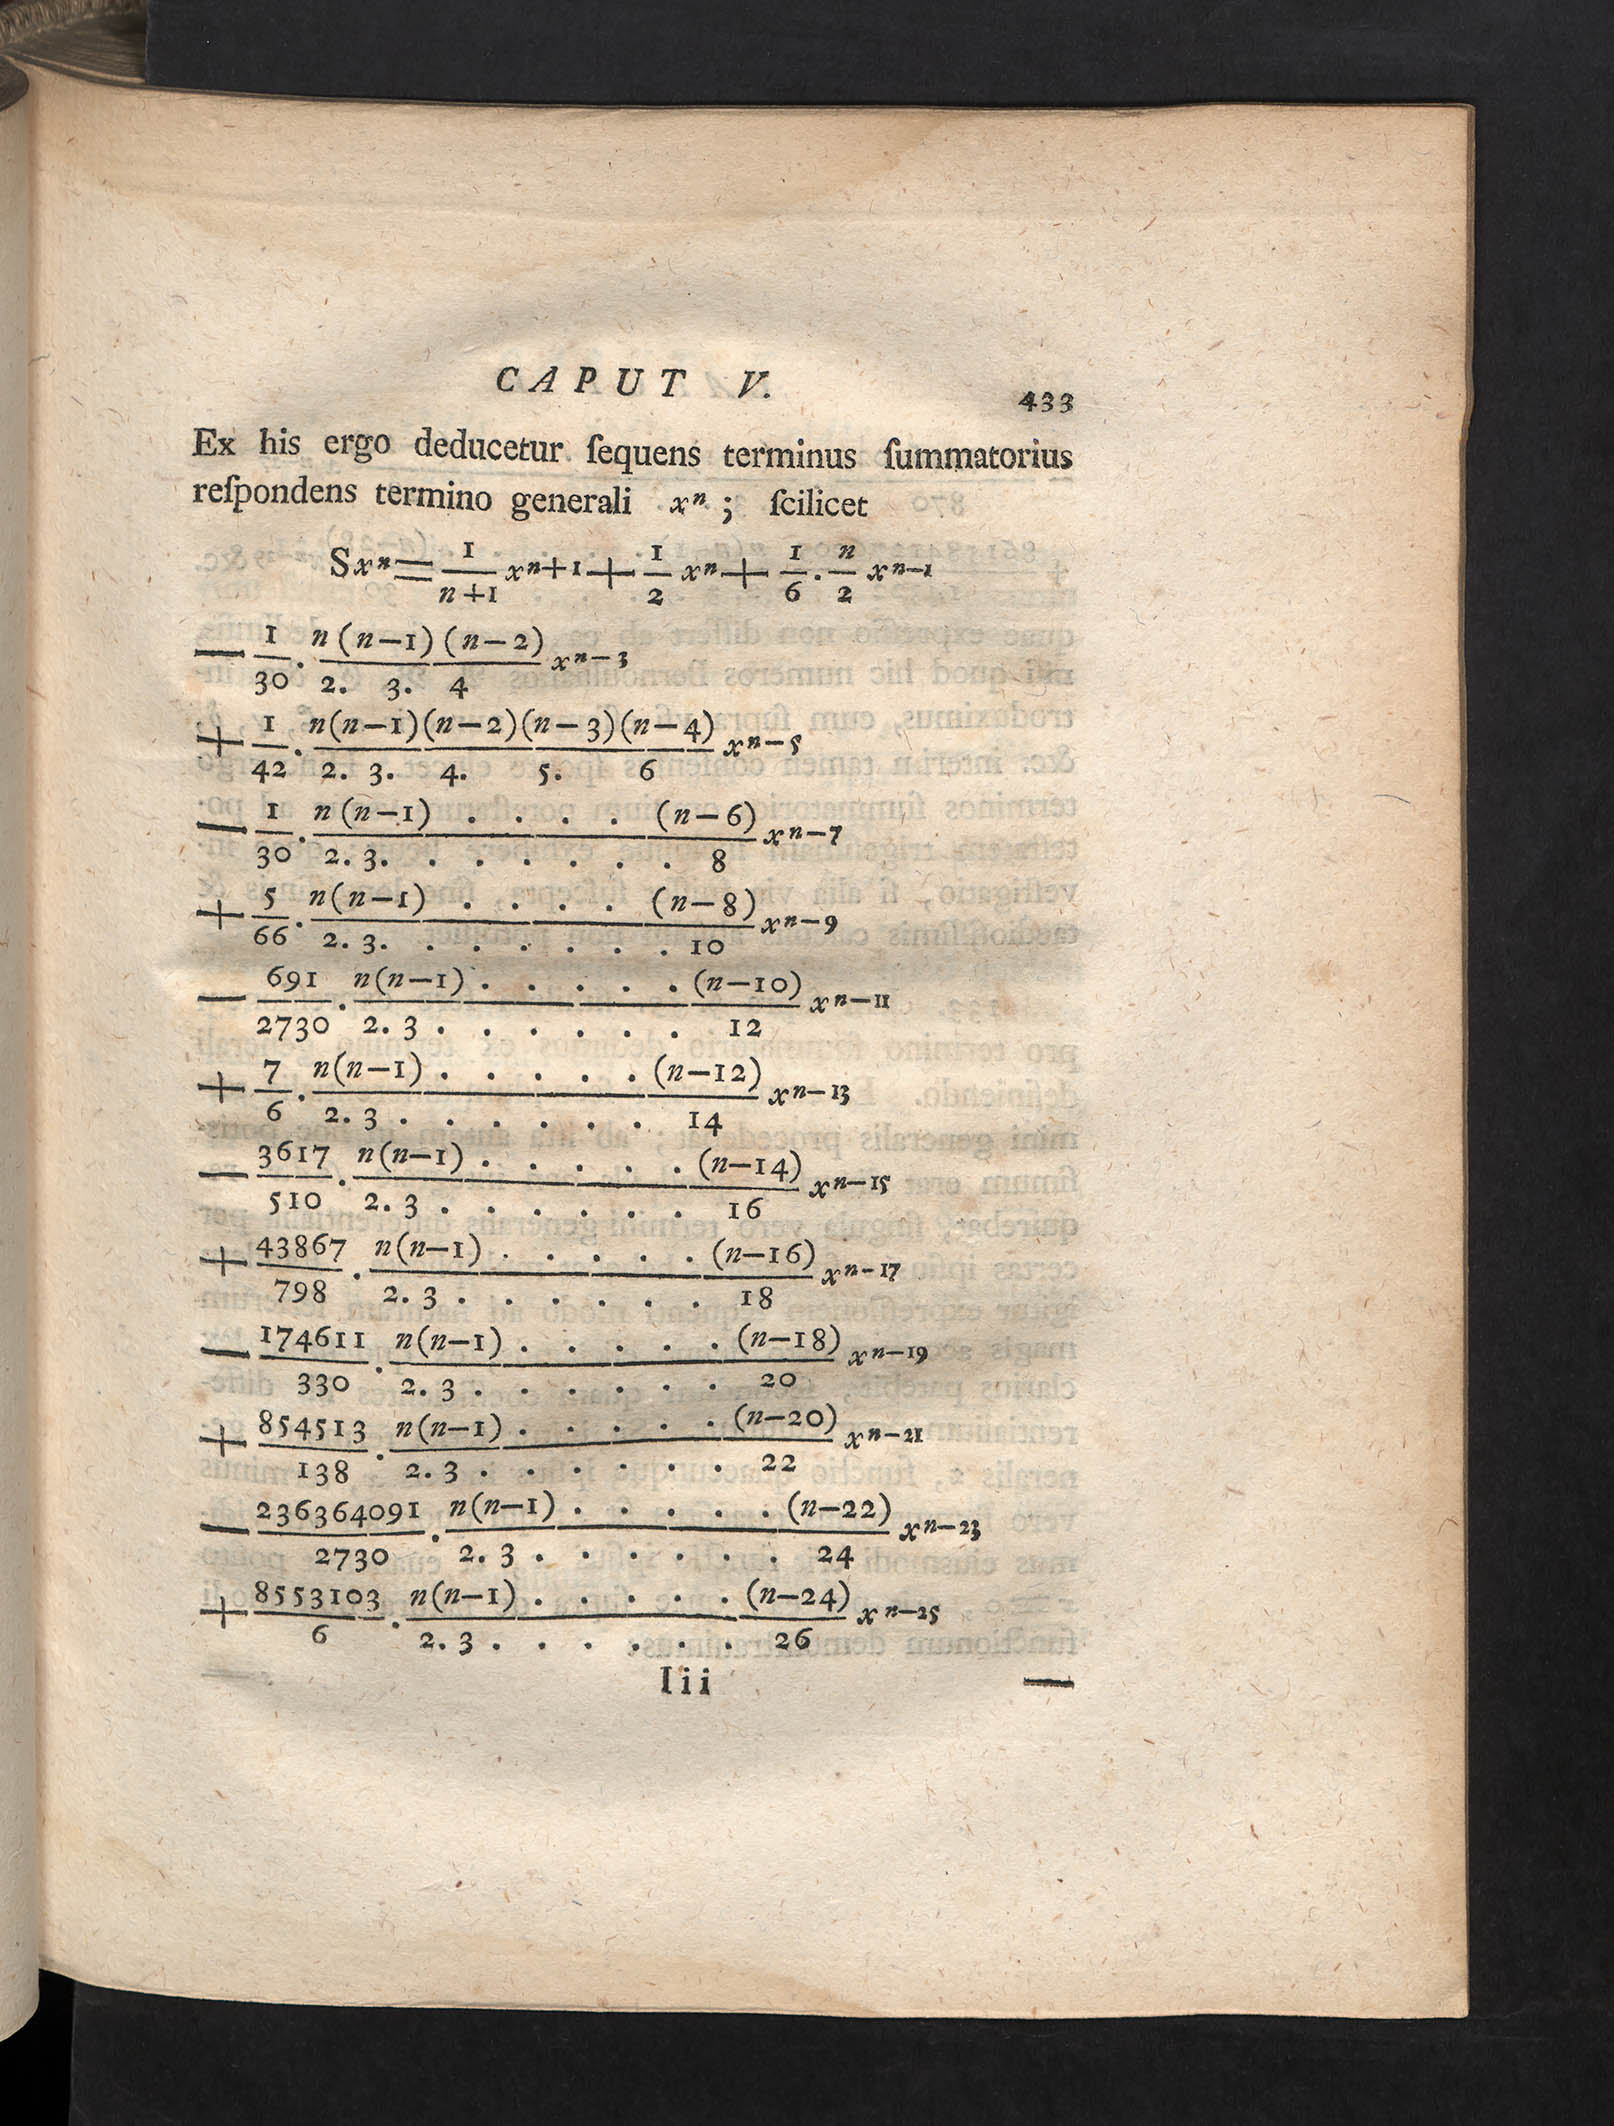 CAPUT V.
433
Ex his ergo deducetur ſequens terminus ſummatorius
reſpondens termino generali xⁿ ; ſcilicet
Sxⁿ = 1/(n+1) xⁿ⁺¹ + 1/2 xⁿ + 1/6 . n/2 xⁿ⁻¹
— 1/30 . n(n—1)(n—2)/2. 3. 4 xⁿ⁻³
+ 1/42 . n(n—1)(n—2)(n—3)(n—4)/2. 3. 4. 5. 6 xⁿ⁻⁵
— 1/30 . n(n—1) . . . . (n—6)/2. 3. . . . . . . 8 xⁿ⁻⁷
+ 5/66 . n(n—1) . . . . (n—8)/2. 3. . . . . . . 10 xⁿ⁻⁹
— 691/2730 . n(n—1) . . . . . (n—10)/2. 3 . . . . . . 12 xⁿ⁻¹¹
+ 7/6 . n(n—1) . . . . . (n—12)/2. 3 . . . . . . 14 xⁿ⁻¹³
— 3617/510 . n(n—1) . . . . . (n—14)/2. 3 . . . . . . 16 xⁿ⁻¹⁵
+ 43867/798 . n(n—1) . . . . . (n—16)/2. 3 . . . . . . 18 xⁿ⁻¹⁷
— 174611/330 . n(n—1) . . . . . (n—18)/2. 3 . . . . . . 20 xⁿ⁻¹⁹
+ 854513/138 . n(n—1) . . . . . (n—20)/2. 3 . . . . . . 22 xⁿ⁻²¹
— 236364091/2730 . n(n—1) . . . . . (n—22)/2. 3 . . . . . . 24 xⁿ⁻²³
+ 8553103/6 . n(n—1) . . . . . (n—24)/2. 3 . . . . . . 26 xⁿ⁻²⁵
Iii —